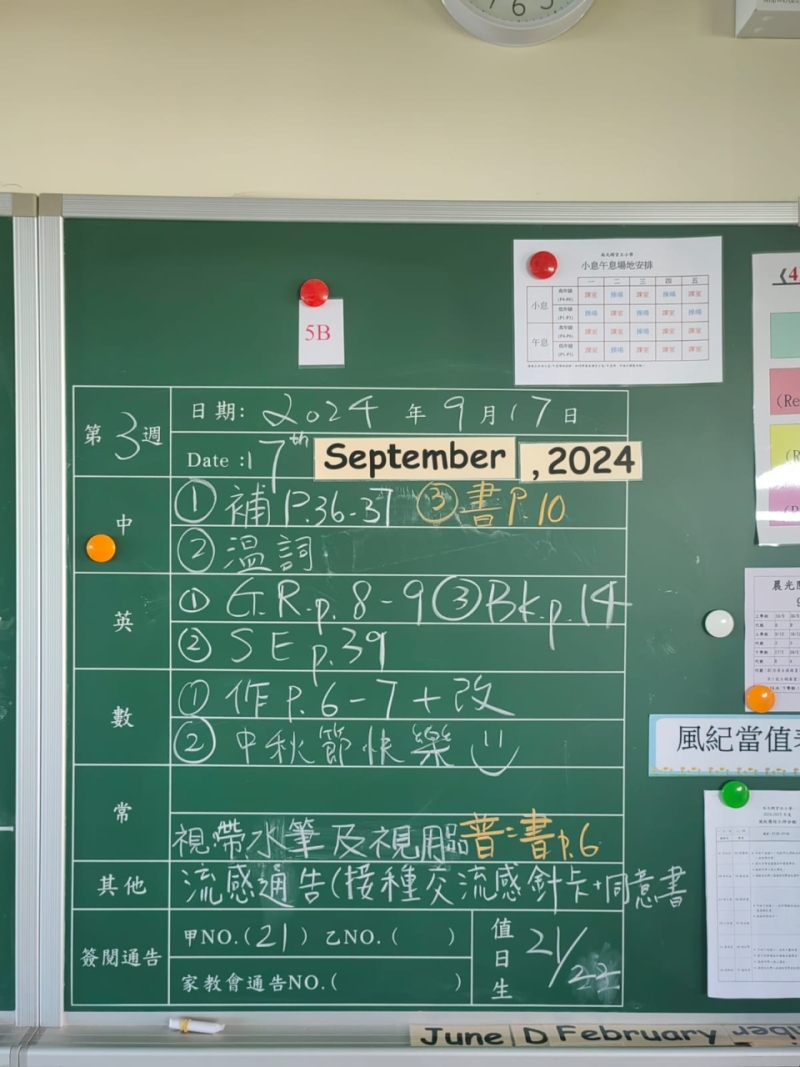 5B
小息午息場地安排
一 二 三 四 五
小息
課室 操場 課室 操場 課室
操場 課室 操場 課室 操場
午息
課室 課室 操場 課室 課室
課室 操場 課室 課室 課室
第3週
日期: 2024 年 9 月 17 日
Date : 17th September , 2024
中
① 補 P.36-37 ③ 書 P.10
② 溫詞
英
① G.R.p.8-9 ③ Bk.p.14
② SE p.39
數
① 作 p.6-7+改
② 中秋節快樂
常
視帶水筆及視用品 普:書 p.6
其他
流感通告(接種交流感針卡+同意書
簽閱通告
甲NO.(21) 乙NO.( )
家教會通告NO.( )
值日生
21/22
風紀當值
June D February